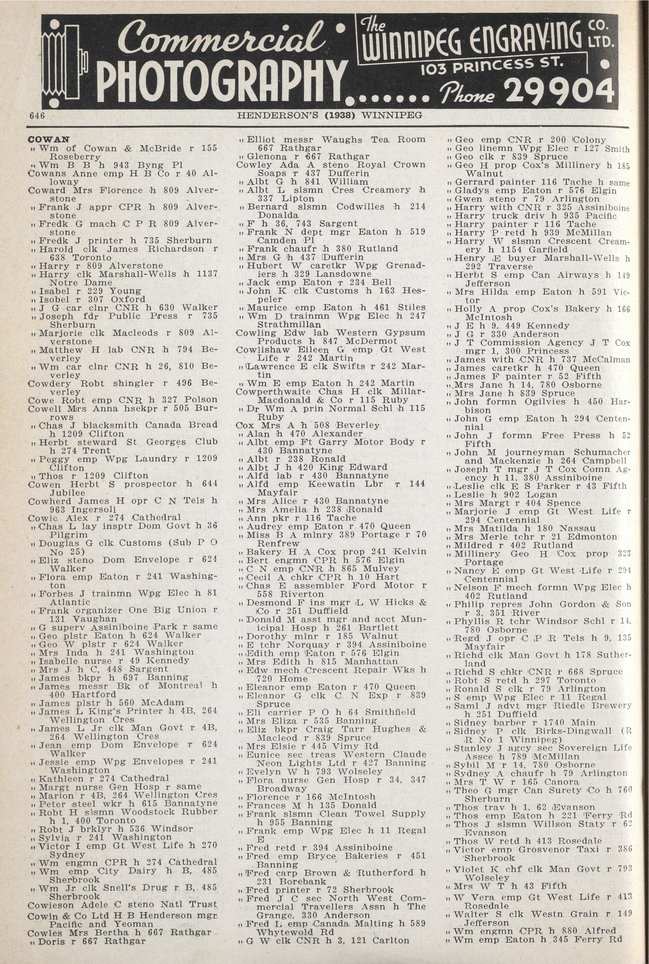 Commercial
PHOTOGRAPHY.......
The
WINNIPEG ENGRAVING CO. LTD.
103 PRINCESS ST.
Phone 29904
646
HENDERSON'S (1938) WINNIPEG
COWAN
„ Wm of Cowan & McBride r 155
Roseberry
„ Wm B B h 943 Byng Pl
Cowans Anne emp H B Co r 40 Al-
loway
Coward Mrs Florence h 809 Alver-
stone
„ Frank J appr CPR h 809 Alver-
stone
„ Fredk G mach C P R 809 Alver-
stone
„ Fredk J printer h 735 Sherburn
„ Harold clk James Richardson r
638 Toronto
„ Harry r 809 Alverstone
„ Harry clk Marshall-Wells h 1137
Notre Dame
„ Isabel r 229 Young
„ Isobel r 307 Oxford
„ J G car clnr CNR h 630 Walker
„ Joseph fdr Public Press r 735
Sherburn
„ Marjorie clk Macleods r 809 Al-
verstone
„ Matthew H lab CNR h 794 Be-
verley
„ Wm car clnr CNR h 26, 810 Be-
verley
Cowdery Robt shingler r 496 Be-
verley
Cowe Robt emp CNR h 327 Polson
Cowell Mrs Anna hsekpr r 505 Bur-
rows
„ Chas J blacksmith Canada Bread
h 1209 Clifton
„ Herbt steward St Georges Club
h 274 Trent
„ Peggy emp Wpg Laundry r 1209
Clifton
„ Thos r 1209 Clifton
Cowen Herbt S prospector h 644
Jubilee
Cowherd James H opr C N Tels h
963 Ingersoll
Cowie Alex r 274 Cathedral
„ Chas L lay insptr Dom Govt h 36
Pilgrim
„ Douglas G clk Customs (Sub P O
No 25)
„ Eliz steno Dom Envelope r 624
Walker
„ Flora emp Eaton r 241 Washing-
ton
„ Forbes J trainmn Wpg Elec h 81
Atlantic
„ Frank organizer One Big Union r
131 Vaughan
„ G superv Assiniboine Park r same
„ Geo plstr Eaton h 624 Walker
„ Geo W plstr r 624 Walker
„ Mrs Inda h 241 Washington
„ Isabelle nurse r 49 Kennedy
„ Mrs J h C, 448 Sargent
„ James bkpr h 697 Banning
„ James messr Bk of Montreal h
400 Hartford
„ James plstr h 560 McAdam
„ James L King's Printer h 4B, 264
Wellington Cres
„ James L Jr clk Man Govt r 4B,
264 Wellington Cres
„ Jean emp Dom Envelope r 624
Walker
„ Jessie emp Wpg Envelopes r 241
Washington
„ Kathleen r 274 Cathedral
„ Margt nurse Gen Hosp r same
„ Marion r 4B, 264 Wellington Cres
„ Peter steel wkr h 615 Bannatyne
„ Robt H slsmn Woodstock Rubber
h 1, 400 Toronto
„ Robt J brklyr h 536 Windsor
„ Sylvia r 241 Washington
„ Victor I emp Gt West Life h 270
Sydney
„ Wm engmn CPR h 274 Cathedral
„ Wm emp City Dairy h B, 485
Sherbrook
„ Wm Jr clk Snell's Drug r B, 485
Sherbrook
Cowieson Adele C steno Natl Trust
Cowin & Co Ltd H B Henderson mgr
Pacific and Yeoman
Cowles Mrs Bertha h 667 Rathgar
„ Doris r 667 Rathgar
„ Elliot messr Waughs Tea Room
667 Rathgar
„ Glenona r 667 Rathgar
Cowley Ada A steno Royal Crown
Soaps r 437 Dufferin
„ Albt G h 841 William
„ Albt L slsmn Cres Creamery h
337 Lipton
„ Bernard slsmn Codwilles h 214
Donalda
„ F h 36, 743 Sargent
„ Frank N dept mgr Eaton h 519
Camden Pl
„ Frank chaufr h 380 Rutland
„ Mrs G h 437 Dufferin
„ Hubert W caretkr Wpg Grenad-
iers h 329 Lansdowne
„ Jack emp Eaton r 234 Bell
„ John K clk Customs h 163 Hes-
peler
„ Maurice emp Eaton h 461 Stiles
„ Wm D trainmn Wpg Elec h 247
Strathmillan
Cowling Edw lab Western Gypsum
Products h 847 McDermot
Cowlishaw Eileen G emp Gt West
Life r 242 Martin
„ Lawrence E clk Swifts r 242 Mar-
tin
„ Wm E emp Eaton h 242 Martin
Cowperthwaite Chas H clk Millar-
Macdonald & Co r 115 Ruby
„ Dr Wm A prin Normal Schl h 115
Ruby
Cox Mrs A h 508 Beverley
„ Alan h 470 Alexander
„ Albt emp Ft Garry Motor Body r
430 Bannatyne
„ Albt r 238 Ronald
„ Albt J h 420 King Edward
„ Alfd lab r 430 Bannatyne
„ Alfd emp Keewatin Lbr r 144
Mayfair
„ Mrs Alice r 430 Bannatyne
„ Mrs Amelia h 238 Ronald
„ Ann pkr r 116 Tache
„ Audrey emp Eaton r 470 Queen
„ Miss B A mlnry 389 Portage r 70
Renfrew
„ Bakery H A Cox prop 241 Kelvin
„ Bert engmn CPR h 576 Elgin
„ C N emp CNR h 865 Mulvey
„ Cecil A chkr CPR h 10 Hart
„ Chas E assembler Ford Motor r
558 Riverton
„ Desmond F ins mgr L W Hicks &
Co r 251 Duffield
„ Donald M asst mgr and acct Mun-
icipal Hosp h 261 Bartlett
„ Dorothy mlnr r 185 Walnut
„ E tchr Norquay r 394 Assiniboine
„ Edith emp Eaton r 576 Elgin
„ Mrs Edith h 815 Manhattan
„ Edw mech Crescent Repair Wks h
720 Home
„ Eleanor emp Eaton r 470 Queen
„ Eleanor G clk C N Exp r 839
Spruce
„ Eli carrier P O h 64 Smithfield
„ Mrs Eliza r 535 Banning
„ Eliz bkpr Craig Tarr Hughes &
Macleod r 839 Spruce
„ Mrs Elsie r 445 Vimy Rd
„ Eunice sec treas Western Claude
Neon Lights Ltd r 427 Banning
„ Evelyn W h 793 Wolseley
„ Flora nurse Gen Hosp r 34, 347
Broadway
„ Florence r 166 McIntosh
„ Frances M h 135 Donald
„ Frank slsmn Clean Towel Supply
h 955 Banning
„ Frank emp Wpg Elec h 11 Regal
E
„ Fred retd r 394 Assiniboine
„ Fred emp Bryce Bakeries r 451
Banning
„ Fred carp Brown & Rutherford h
231 Borebank
„ Fred printer r 72 Sherbrook
„ Fred J C sec North West Com-
mercial Travellers Assn h The
Grange, 330 Anderson
„ Fred L emp Canada Malting h 589
Whytewold Rd
„ G W clk CNR h 3, 121 Carlton
„ Geo emp CNR r 200 Colony
„ Geo linemn Wpg Elec r 127 Smith
„ Geo clk r 839 Spruce
„ Geo H prop Cox's Millinery h 185
Walnut
„ Gerrard painter 116 Tache h same
„ Gladys emp Eaton r 576 Elgin
„ Gwen steno r 79 Arlington
„ Harry with CNR r 325 Assiniboine
„ Harry truck driv h 935 Pacific
„ Harry painter r 116 Tache
„ Harry P retd h 939 McMillan
„ Harry W slsmn Crescent Cream-
ery h 1154 Garfield
„ Henry E buyer Marshall-Wells h
292 Traverse
„ Herbt S emp Can Airways h 149
Jefferson
„ Mrs Hilda emp Eaton h 591 Vic-
tor
„ Holly A prop Cox's Bakery h 166
McIntosh
„ J E h 9, 449 Kennedy
„ J G r 330 Anderson
„ J T Commission Agency J T Cox
mgr 1, 300 Princess
„ James with CNR h 737 McCalman
„ James caretkr h 470 Queen
„ James P painter r 52 Fifth
„ Mrs Jane h 14, 780 Osborne
„ Mrs Jane h 839 Spruce
„ John formn Ogilvies h 450 Har-
bison
„ John G emp Eaton h 294 Centen-
nial
„ John J formn Free Press h 52
Fifth
„ John M journeyman Schumacher
and Mackenzie h 264 Campbell
„ Joseph T mgr J T Cox Comn Ag-
ency h 11, 380 Assiniboine
„ Leslie clk E S Parker r 43 Fifth
„ Leslie h 902 Logan
„ Mrs Margt r 404 Spence
„ Marjorie J emp Gt West Life r
294 Centennial
„ Mrs Matilda h 180 Nassau
„ Mrs Merle tchr r 21 Edmonton
„ Mildred r 402 Rutland
„ Millinery Geo H Cox prop 323
Portage
„ Nancy E emp Gt West Life r 294
Centennial
„ Nelson F mech formn Wpg Elec h
402 Rutland
„ Philip repres John Gordon & Son
r 3, 351 River
„ Phyllis R tchr Windsor Schl r 14,
780 Osborne
„ Regd J opr C P R Tels h 9, 135
Mayfair
„ Richd clk Man Govt h 178 Suther-
land
„ Richd S chkr CNR r 668 Spruce
„ Robt S retd h 297 Toronto
„ Ronald S clk r 79 Arlington
„ S emp Wpg Elec r 11 Regal
„ Saml J advt mgr Riedle Brewery
h 251 Duffield
„ Sidney barber r 1740 Main
„ Sidney P clk Birks-Dingwall (R
R No 1 Winnipeg)
„ Stanley J agcy sec Sovereign Life
Assce h 789 McMillan
„ Sybil M r 14, 780 Osborne
„ Sydney A chaufr h 79 Arlington
„ Mrs T W r 165 Canora
„ Theo G mgr Can Surety Co h 760
Sherburn
„ Thos trav h 1, 62 Evanson
„ Thos emp Eaton h 221 Ferry Rd
„ Thos J slsmn Willson Staty r 62
Evanson
„ Thos W retd h 413 Rosedale
„ Victor emp Grosvenor Taxi r 386
Sherbrook
„ Violet K chf clk Man Govt r 793
Wolseley
„ Mrs W T h 43 Fifth
„ W Vera emp Gt West Life r 413
Rosedale
„ Walter S clk Westn Grain r 149
Jefferson
„ Wm engmn CPR h 880 Alfred
„ Wm emp Eaton h 345 Ferry Rd